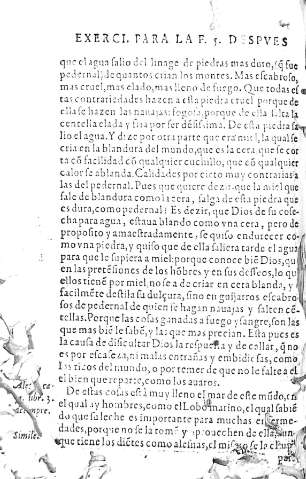 EXERCI. PARA LA F. 5. DESPVES
que el agua salio del linage de piedras mas duro, q̃ fue
pedernal, de quantos crian los montes. Mas escabroso,
mas cruel, mas elado, mas lleno de fuego. Que todas es
tas contrariedades hazen a esta piedra cruel porque de
ella se hazen las nauajas: fogosa, porque de ella
centella elada y fria por ser densissima. De esta piedra sa
lio el agua. Y dize por otra parte que era miel, la qual se
cria en la blandura del mundo, que es la cera que se cor
ta cõ facilidad cõ qualquier cuchillo, que cõ qualquier
calor se ablanda. Calidades por cierto muy contrarias a
las del pedernal. Pues que quiere dezir que la miel que
sale de blandura como la cera, salga de esta piedra que
es dura, como pedernal? Es dezir, que Dios de su cose-
cha para agua, estaua blando como vna cera, pero de
proposito y amaestradamente, se quiso endurecer co
mo vna piedra, y quiso que de ella saliera tarde el agua
para que le supiera a miel: porque conoce biẽ Dios, qu
en las pretẽsiones de los hõbres y en sus desseos, lo qu
ellos tienẽ por miel, no se a de criar en cera blanda, y
facilmẽte destila su dulçura, sino en guijarros escabro
sos de pedernal de quien se hagan nauajas y salten cẽ-
tellas. Porque las cosas ganadas a fuego y sangre, son las
que mas biẽ le sabẽ, y las que mas precian. Esta pues es
la causa de dificultar Dios la respuesta y de callar, q̃ no
es por escaseza, ni malas entrañas y embidiosas, como
los ricos del mundo, o por temer de que no le falte a el
el bien que reparte, como los auaros.
De estas cosas està muy lleno el mar de este mũdo, en
el qual ay hombres, como el Lobo marino, el qual sabiẽ
do que su leche es importante para muchas enferme-
dades, porque no se la tomẽ y aprouechen de ella, aun
que tiene los diẽtes como alesnas, el mismo se
Simile.